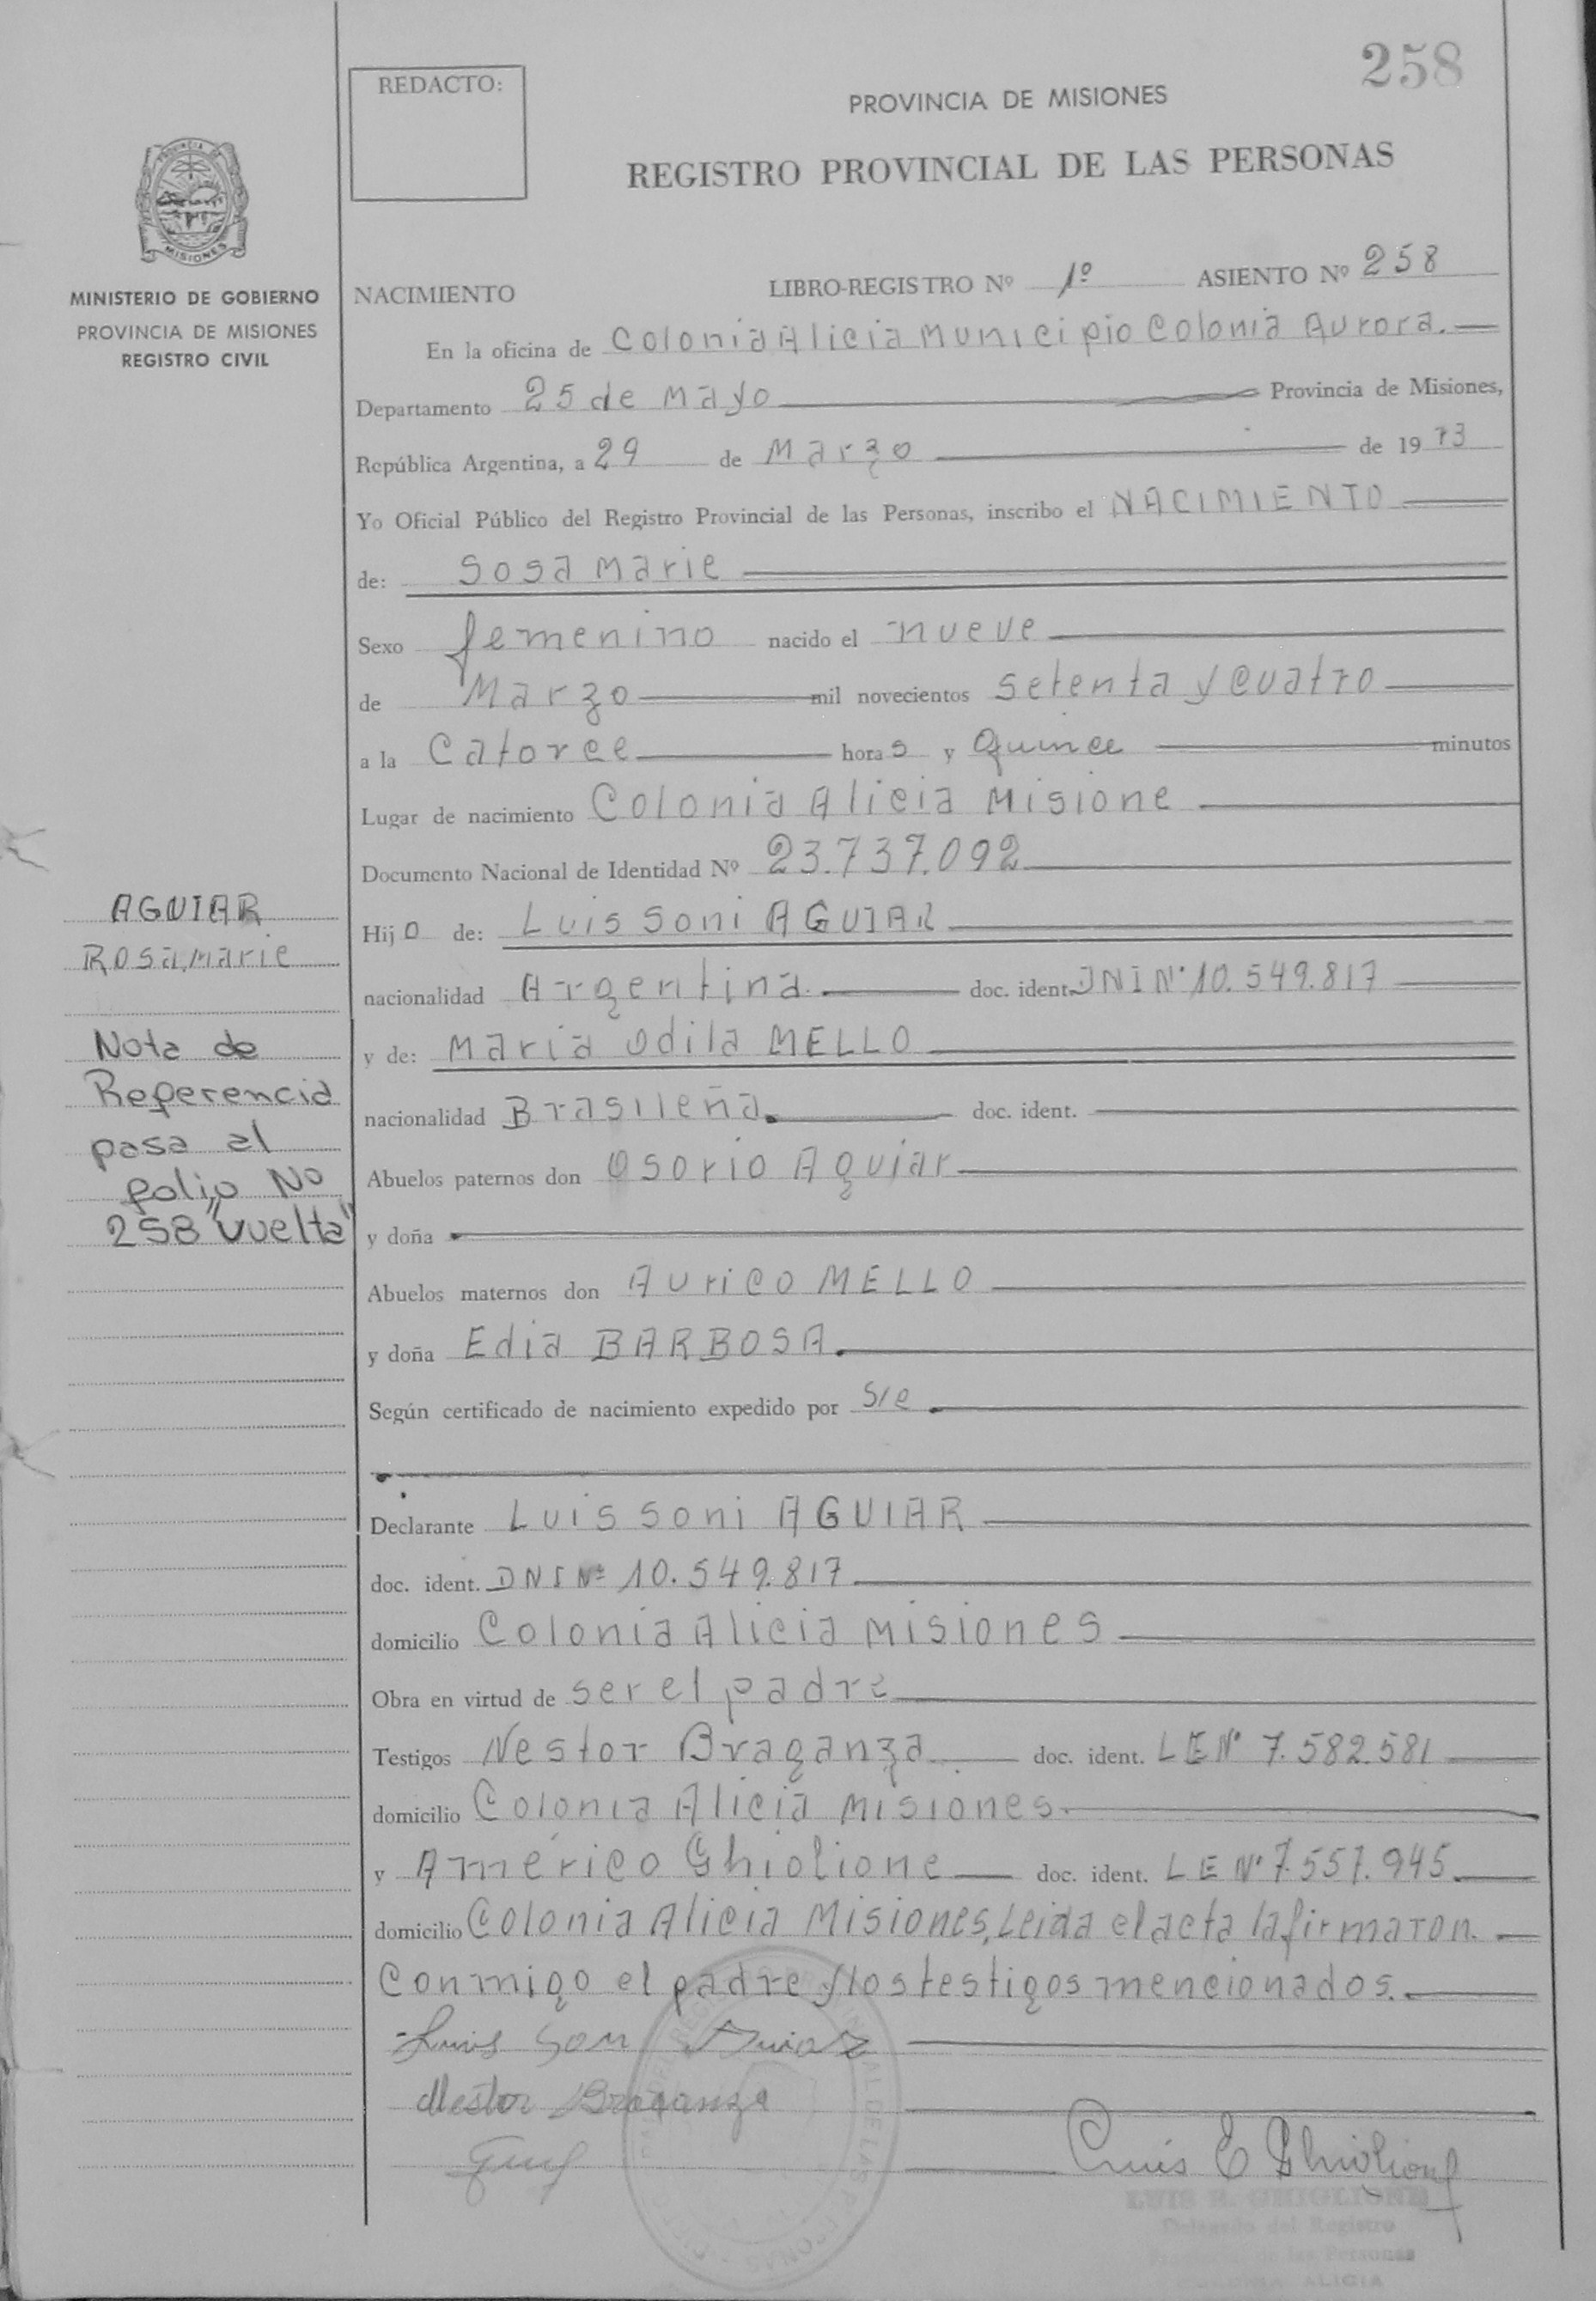 258
REDACTO:
PROVINCIA DE MISIONES
REGISTRO PROVINCIAL DE LAS PERSONAS
PROVINCIA DE
MISIONES
MINISTERIO DE GOBIERNO
PROVINCIA DE MISIONES
REGISTRO CIVIL
NACIMIENTO LIBRO-REGISTRO Nº 1º ASIENTO Nº 258
En la oficina de Colonia Alicia Municipio Colonia Aurora.
Departamento 25 de Mayo Provincia de Misiones,
República Argentina, a 29 de Marzo de 1973
Yo Oficial Público del Registro Provincial de las Personas, inscribo el NACIMIENTO
de: Sosa Marie
Sexo femenino nacido el nueve
de Marzo mil novecientos setenta y cuatro
a la Catorce horas y Quince minutos
Lugar de nacimiento Colonia Alicia Misione
Documento Nacional de Identidad Nº 23.737.092
Hijo de: Luis Soni AGUIAR
nacionalidad Argentina. doc. ident. DNI Nº 10.549.817
y de: Maria Odila MELLO
nacionalidad Brasileña. doc. ident.
Abuelos paternos don Osorio Aguiar
y doña
Abuelos maternos don Aurico MELLO
y doña Edia BARBOSA.
Según certificado de nacimiento expedido por S/e.
Declarante Luis Soni AGUIAR
doc. ident. DNI Nº 10.549.817
domicilio Colonia Alicia Misiones
Obra en virtud de ser el padre
Testigos Nestor Braganza doc. ident. LE Nº 7.582.581
domicilio Colonia Alicia Misiones.
y Américo Ghiolione doc. ident. LE Nº 7.557.945.
domicilio Colonia Alicia Misiones, Leida el acta la firmaron.
Conmigo el padre y los testigos mencionados.
Luis Soni
Nestor Braganza
Luis E Ghiglione
LUIS E. GHIGLIONE
Delegado del Registro
de las Personas
ALICIA
AGUIAR
Rosa Marie
Nota de
Referencia
pasa al
folio No
258 "vuelta"